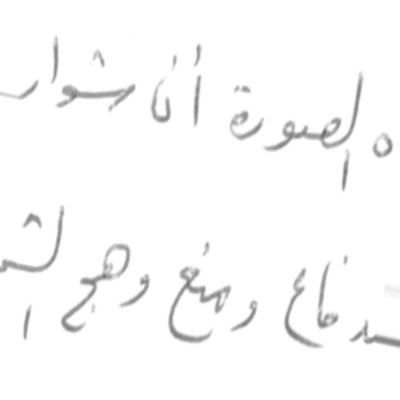 ه الصورة أن شوار
ـد فاع ومنع وهج الشـ